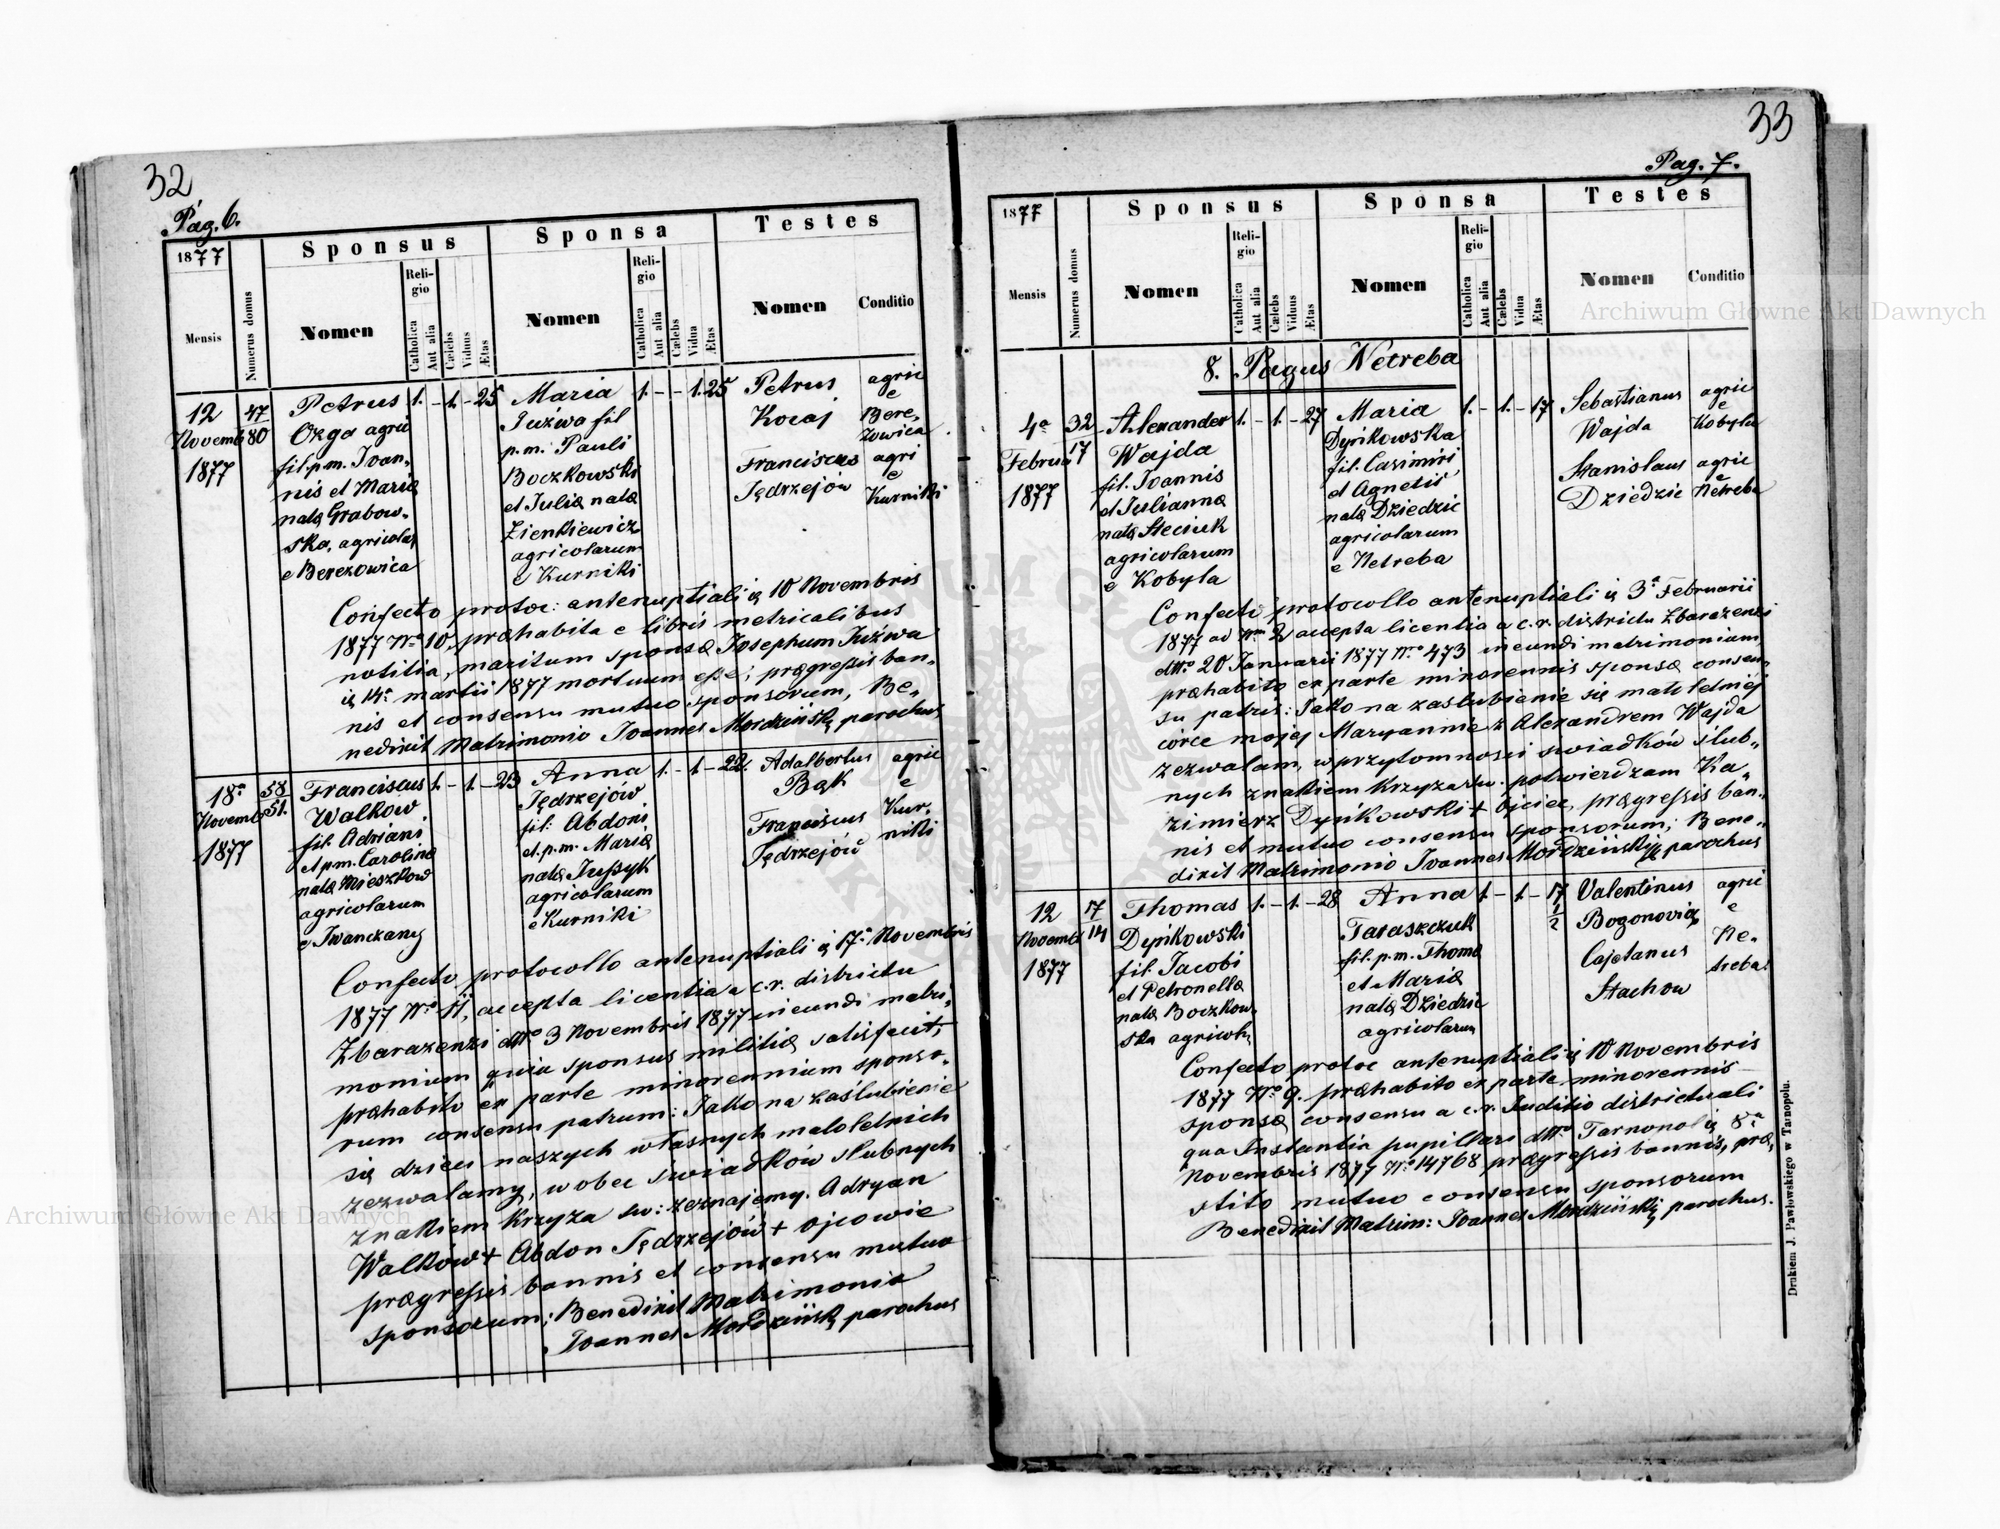 32
Pag. 6.
1877
Sponsus
Sponsa
Testes
Mensis
Numerus domus
Nomen
Religio
Catholica
Aut alia
Cælebs
Viduus
Ætas
Nomen
Religio
Catholica
Aut alia
Cælebs
Vidua
Ætas
Nomen
Conditio
12
Novemb
1877
47
80
Petrus
Ozga agric
fil. p. m. Joan„
nis et Mariæ
natæ Grabow„
ska, agricolæ
e Berezowica
1. – 1. – 25
Maria
Juźwa fil
p. m. Pauli
Boczkowski
et Juliæ natæ
Zienkiewicz
agricolarum
e Kurniki
1. – – 1. 25
Petrus
Kozaj
Franciscus
Jędrzejów
agric
e
Bere„
zowica
agri
e
Kurniki
Confecto protoc: antenuptiali 10 Novembris
1877 Nro 10, præhabita e libris metricalibus
notitia, maritum sponsæ Josephum Juźwa
14a martii 1877 mortuum esse; prægressis ban„
nis et consensu mutuo sponsorum, Be„
nedixit Matrimonio Joannes Mordziński parochus
18a
Novemb
1877
58
51.
Franciscus
Walkow
fil. Adriani
et p.m. Carolinæ
natæ Mieszkow
agricolarum
e Iwanczany
1. – 1. – 23
Anna
Jędrzejów
fil: Abdoni
et. p. m. Mariæ
natæ Juszyk
agricolarum
e Kurniki
1. – 1. – 22.
Adalbertus
Bąk
Franciscus
Jędrzejów
agric
e
Kur„
niki
Confecto protocollo antenuptiali 17a Novembris
1877 Nro 11, accepta licentia a c. r. districtu
Zbarazensi dtto 3 Novembris 1877 ineundi matri„
monium quia sponsus militiæ satisfecit,
præhabito ex parte minorennium sponso„
rum consensu patrum: Jako na zaślubienie
się dzieci naszych własnych małoletnich
zezwalamy, wobec świadków slubnych
znakiem krzyża sw: zeznajemy. Adryan
Walków + Abdon Jędrzejów + ojcowie
prægressis bannis et consensu mutuo
sponsorum; Benedixit Matrimonio
Joannes Mordziński parochus
33
Pag. 7.
1877
Sponsus
Sponsa
Testes
Mensis
Numerus domus
Nomen
Religio
Catholica
Aut alia
Cælebs
Viduus
Ætas
Nomen
Religio
Catholica
Aut alia
Cælebs
Vidua
Ætas
Nomen
Conditio
8. Pagus Netreba
4a
Februa
1877
32
17
Alexander
Wajda
fil. Joannis
et Juliannæ
natæ Steciuk
agricolarum
e Kobyla
1. – 1. – 27
Maria
Dyńkowska
fil. Casimiri
et Agnetis
natæ Dziedzic
agricolarum
e Netreba
1. – 1. – 17
Sebastianus
Wajda
Stanislaus
Dziedzic
agric
e
Kobyla
agric
e
Netreba
Confecto protocollo antenuptiali 3a Februarii
1877 ad Nrm 2 accepta licentia a c. r. districtu Zbarazensi
dtto 20 Januarii 1877 Nro 473 ineundi matrimonium,
præhabito ex parte minorennis sponsæ consen„
su patris: Jako na zaslubienie się małoletniéj
córce mojej Maryannie z Alexandrem Wajda
zezwalam, w przytomności swiadków slub„
nych znakiem krzyża sw. potwierdzam Ka„
zimierz Dyńkowski + Ojciec, prægressis ban„
nis et mutuo consensu sponsorum; Bene„
dixit Matrimonio Joannes Mordziński parochus
12
Novemb
1877
17
14
Thomas
Dyńkowski
fil. Jacobi
et Petronellæ
natæ Boczkow„
ska agricol.
1. – 1. – 28
Anna
Taraszczuk
fil. p. m. Thomæ
et Mariæ
natæ Dziedzic
agricolarum
1. – 1. – 17
1
2
Valentinus
Bogonovicz
Cajetanus
Stachow
agric
e
Ne„
treba
Confecto protoc antenuptiali 10 Novembris
1877 Nro 9. præhabito ex parte minorennis
sponsæ consensu a c. r. Juditio districtuali
qua Instantia pupillari dtto Tarnopoli 8a
Novembris 1877 Nro 14768 prægressis bannis, præ„
stito mutuo consensu sponsorum
Benedixit Matrim: Joannes Mordziński parochus.
Drukiem J. Pawłowskiego w Tarnopolu.
Archiwum Główne Akt Dawnych
Archiwum Główne Akt Dawnych